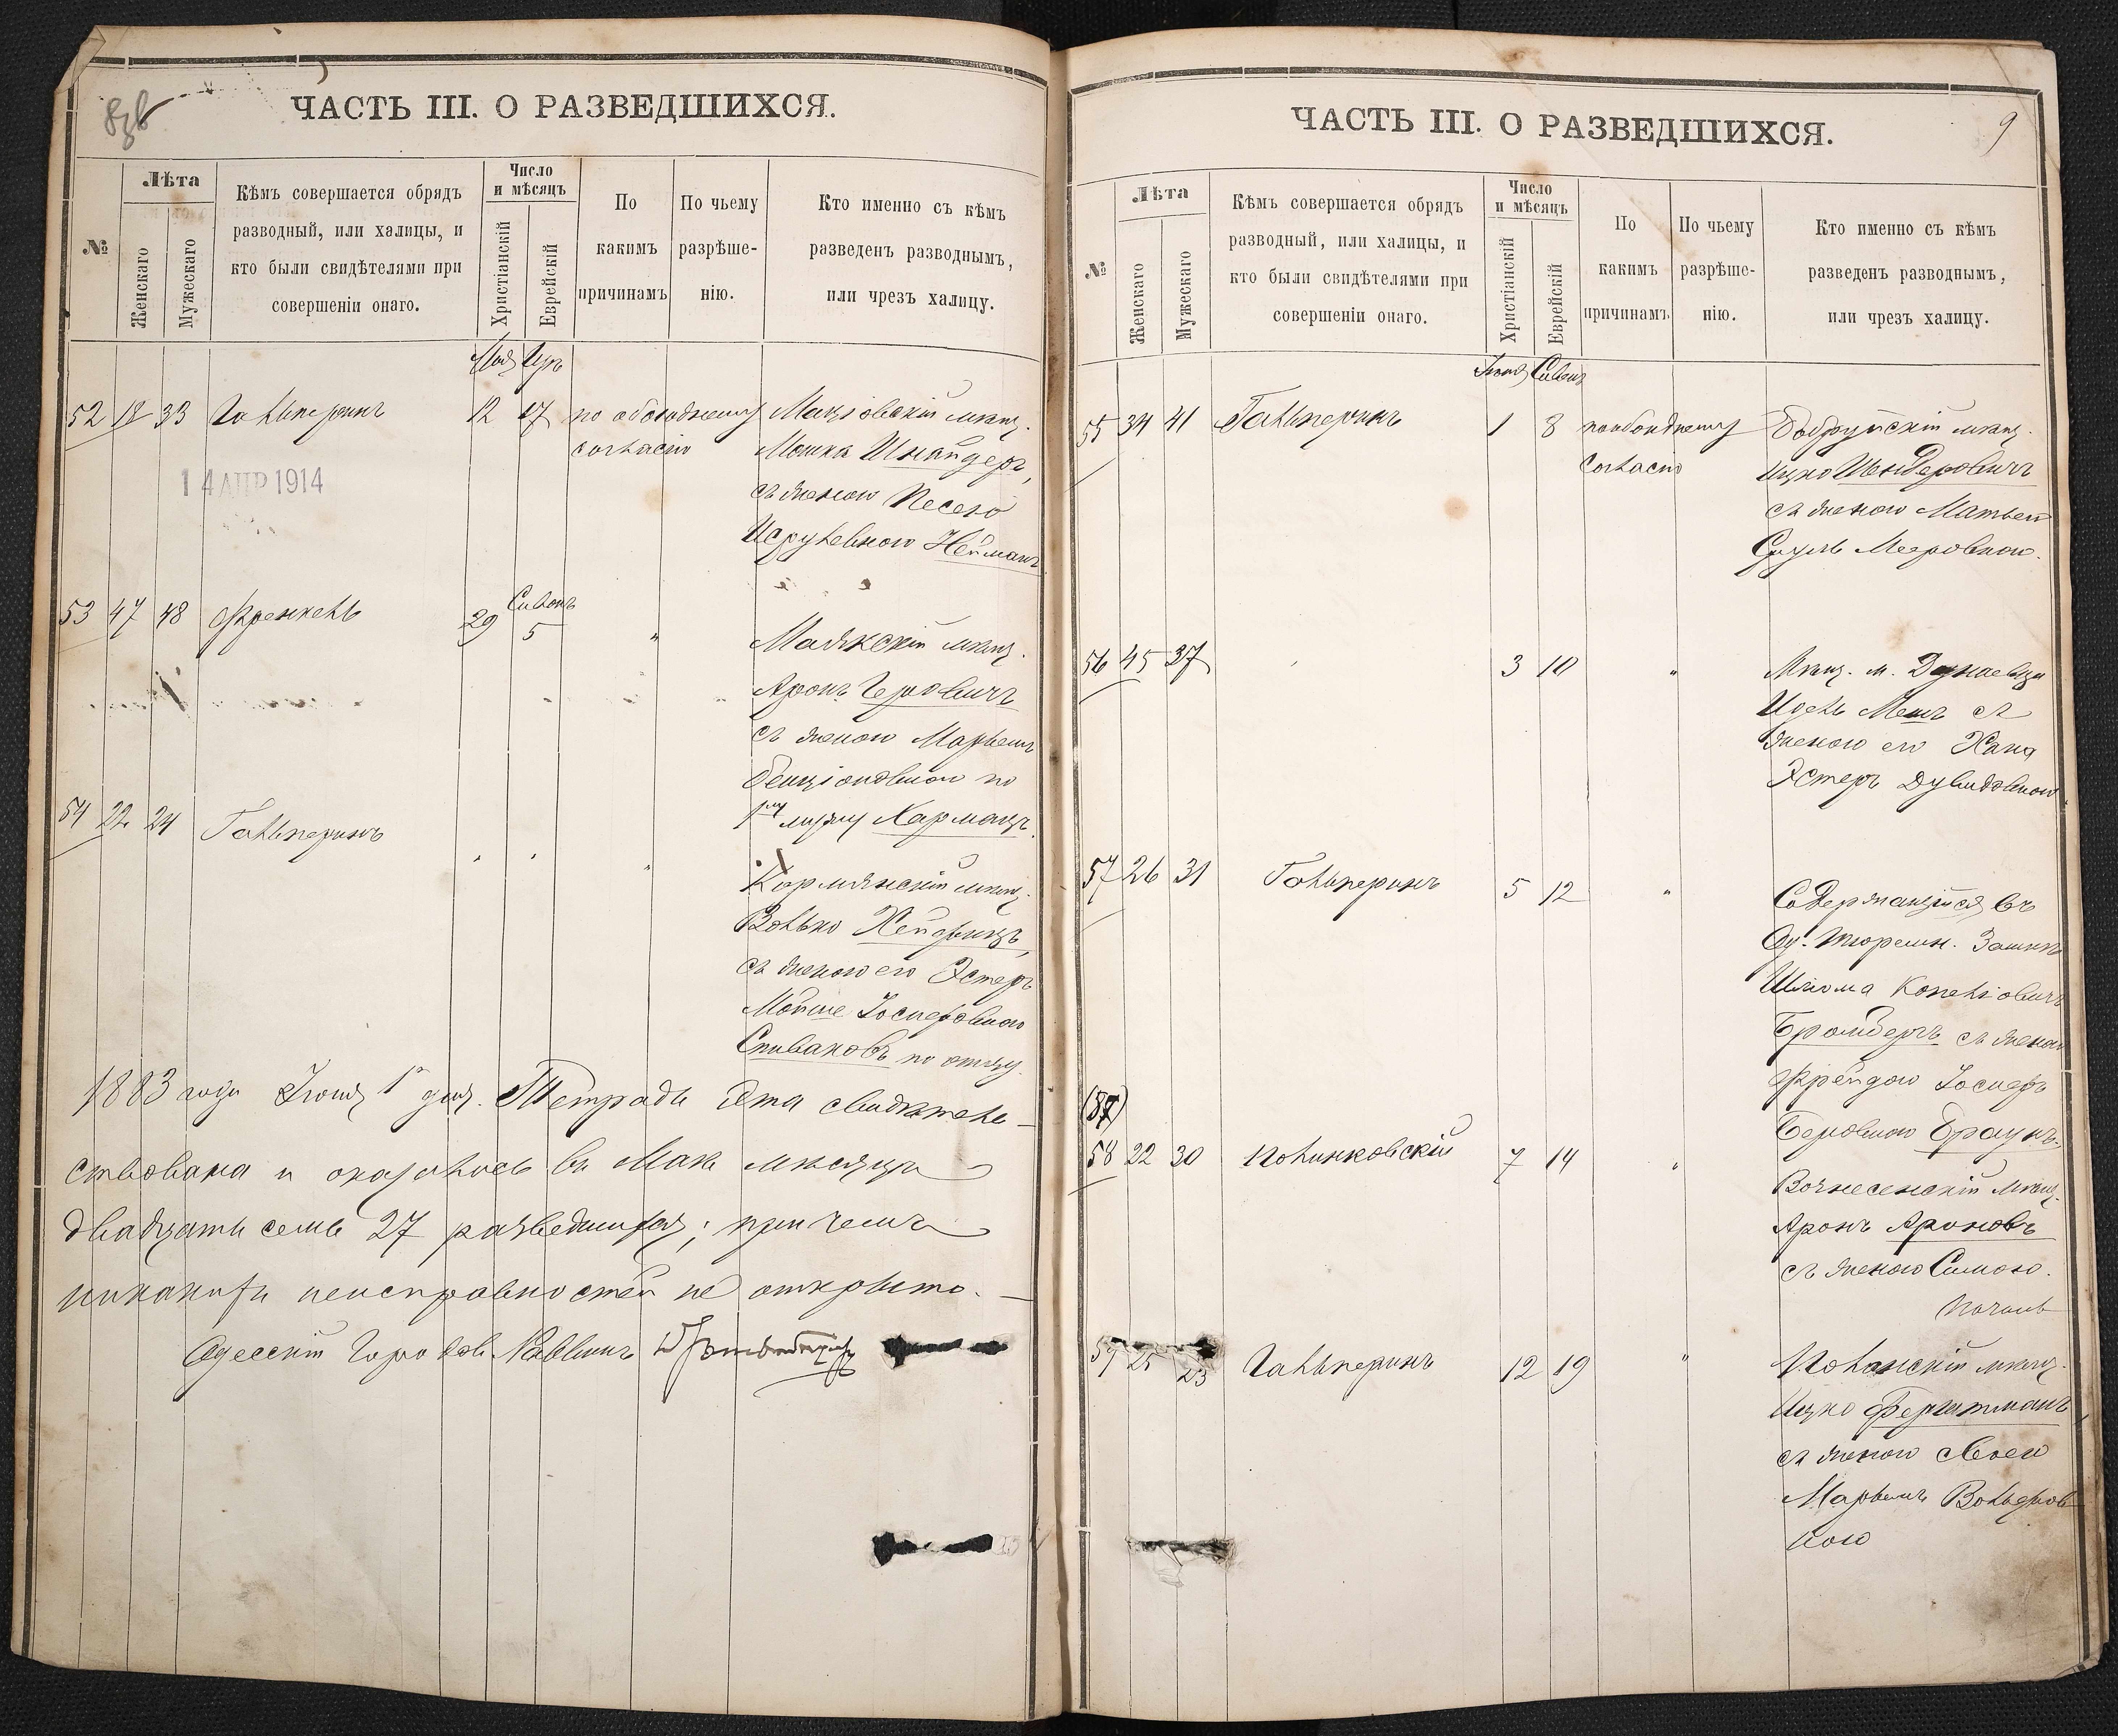 ЧАСТЬ III. О РАЗВЕДШИХСЯ.
№
Лѣта
Женскаго
Мужескаго
Кѣмъ совершается обрядъ
разводный, или халицы, и
кто были свидѣтелями при
совершеніи онаго.
Число
и мѣсяцъ
Христіанскій
Еврейскій
По
какимъ
причинамъ
По чьему
разрѣше-
нію.
Кто именно съ кѣмъ
разведенъ разводнымъ,
или чрезъ халицу.
Мая Іуръ
52 18 33 Гальперинъ 12 17 по обоюдному согласію
Мошка Шнайдеръ,
съ женою Песею
Исрулевною Нейманъ
14 АПР 1914
53 47 48 Френкель 29 Сивонъ 5 "
Маякскій мѣщ.
Аронъ Геровичъ
съ женою Марьемъ
Бенціоновною по
1му мужу Харманъ.
54 22 24 Гальперинъ " " "
Волько Хейфицъ,
съ женою его Эстеръ
Мойше Іосифовною
Спиваковъ по отцу.
1883 года Іюня 1го дня. Тетрадь эта свидѣтель-
ствована и оказалось въ Маѣ мѣсяцѣ
двадцать семь 27 разведшихся; при чемъ
никакихъ неисправностей не открыто.
Одесскій Городов. Раввинъ
ЧАСТЬ III. О РАЗВЕДШИХСЯ.
9
№
Лѣта
Женскаго
Мужескаго
Кѣмъ совершается обрядъ
разводный, или халицы, и
кто были свидѣтелями при
совершеніи онаго.
Число
и мѣсяцъ
Христіанскій
Еврейскій
По
какимъ
причинамъ
По чьему
разрѣше-
нію.
Кто именно съ кѣмъ
разведенъ разводнымъ,
или чрезъ халицу.
Іюня Сивонъ
55 34 41 Гальперинъ 1 8 по обоюдному согласію
Бобруйскій мѣщ.
Ицко Шендеровичъ
съ женою
Мееровною.
56 45 37 " 3 10 "
Мѣщ. м. Дунаевцы
Идель Мешъ съ
женою его Хана
Эстеръ Дувидовною
57 26 31 Гальперинъ 5 12 "
Содержащійся въ
Од. тюремн. Замкѣ
Шлома
Бромбергъ съ женою
Фрейдою Іосифъ
Беровною Браунъ.
58 22 30 Полинковскій 7 14 "
Вознесенскій мѣщ.
Аронъ Ароновъ
съ женою Симою.
59 25 23 Гальперинъ 12 19 "
мѣщ.
Ицко
съ женою своею
Марьемъ Вольфов-
ною